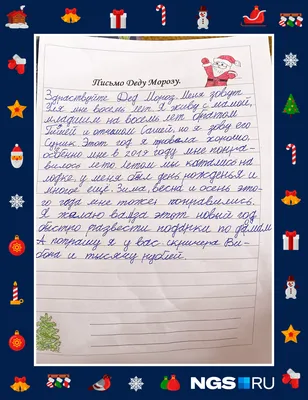 Письмо Деду Морозу.
Здраствуйте Дед Мороз. Меня зовут
мне восемь лет. Я живу с мамой,
младшим на восемь лет братом
и отчимом Сашей, но я зову его
Этот год я провела хорошо.
особенно мне в 2019 году мне понра-
вилось лето летом мы катались на
лодке, у меня был день ножденья и
многое ещё. Зима, весна и осень это-
го года мне тоже понравились.
Я желаю вам в этот новый год
быстро развести подарки по домам
А попрошу я у вас скринчера Ви-
бона и тысячу рублей.
NGS RU